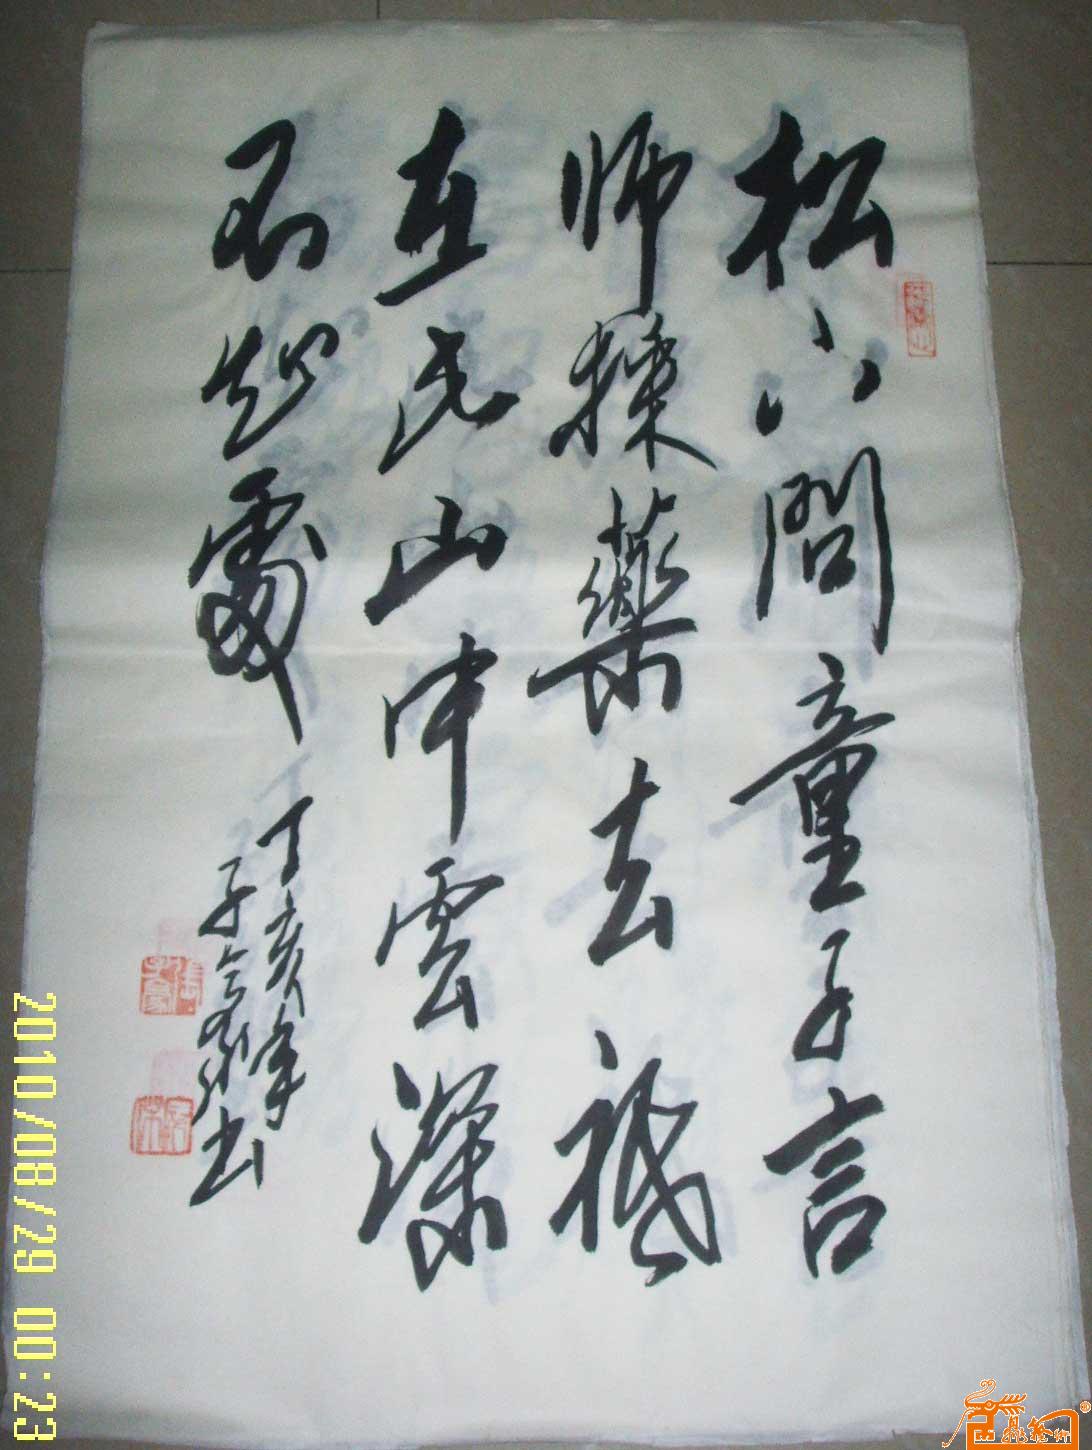 松下問童子言
師採藥去祗
在此山中雲深
不知處
丁亥年
書
2010/08/29 00:23